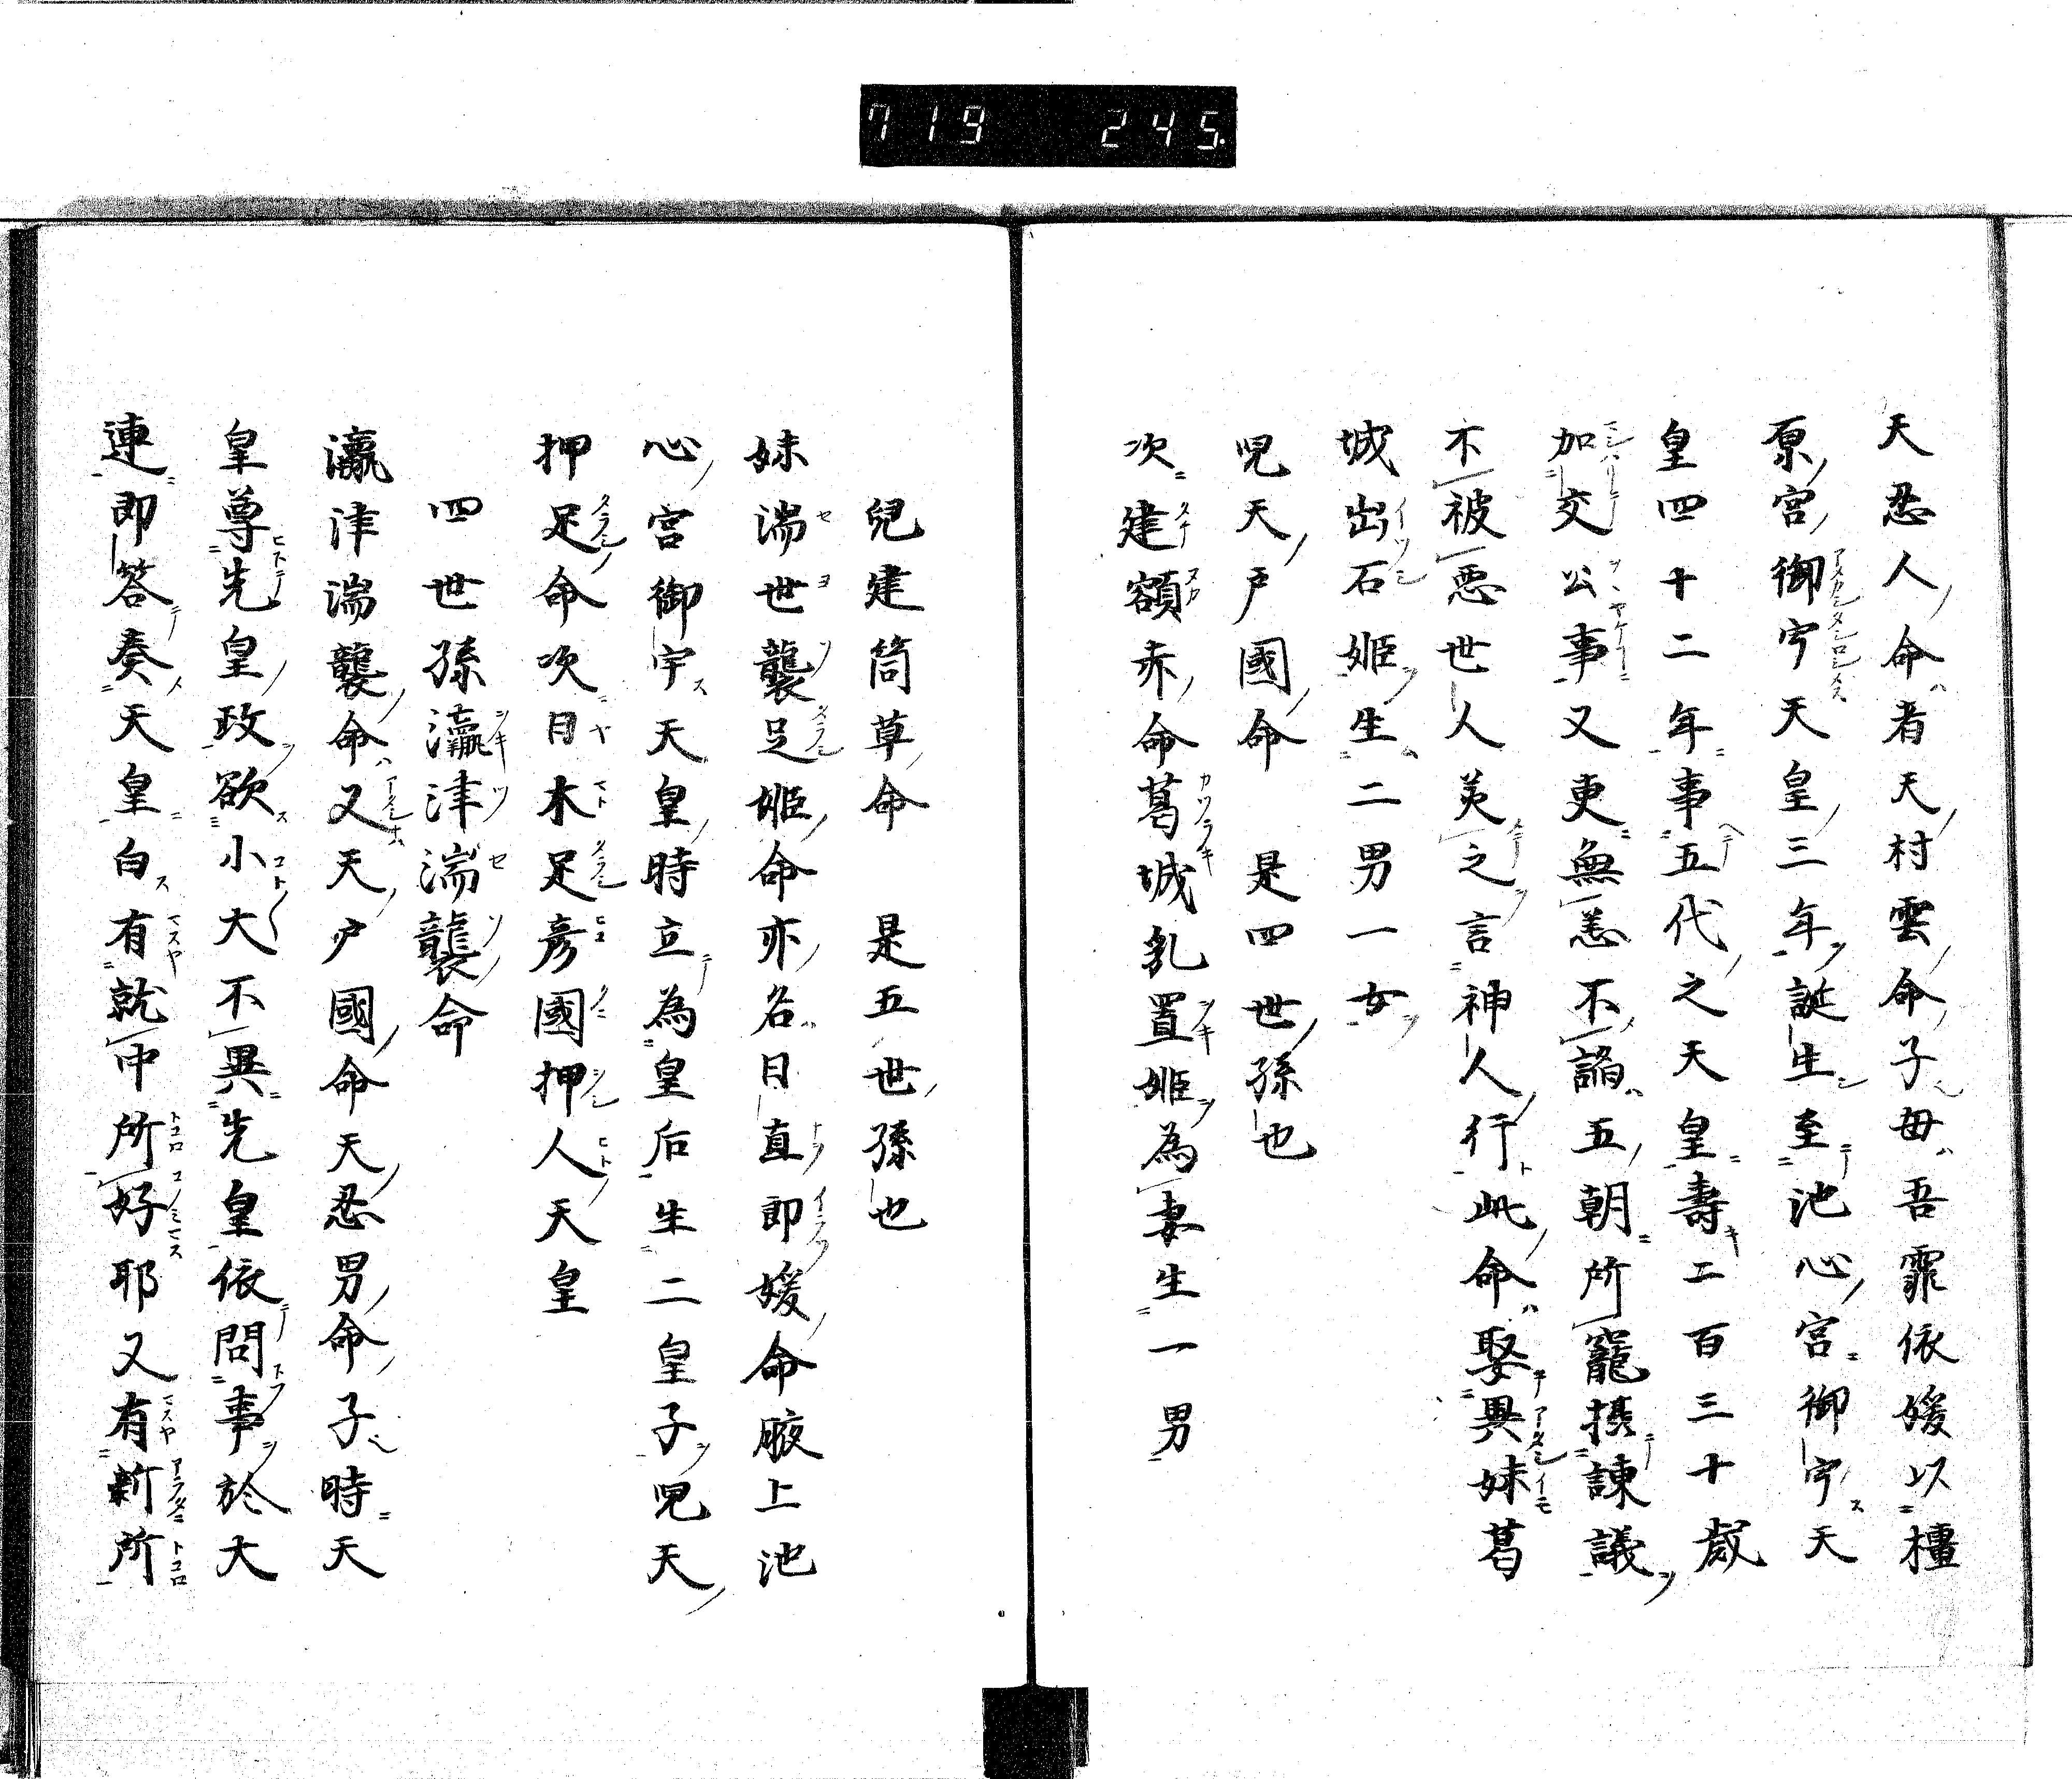 719 245
天忍人命者天村雲命子母吾霏依媛以橿
原宮御宇天皇三年誕生至池心宮御宇天
皇四十二年事五代之天皇壽二百三十歲
加交公事又更無恙不諂五朝所寵摂諌議
不被惡世人美之言神人行此命娶異妹葛
城出石姬生二男一女
兒天戸國命 是四世孫也
次建額赤命葛城乳置姬為妻生一男
兒建筒草命 是五世孫也
妹湍世襲足姬命亦名日直即媛命腋上池
心宮御宇天皇時立為皇后生二皇子兒天
押足命次日本足彥國押人天皇
四世孫瀛津湍襲命
瀛津湍襲命又天戸國命天忍男命子時天
皇尊先皇政欲小大不異先皇依問事於大
連即答奏天皇白有就中所好耶又有新所